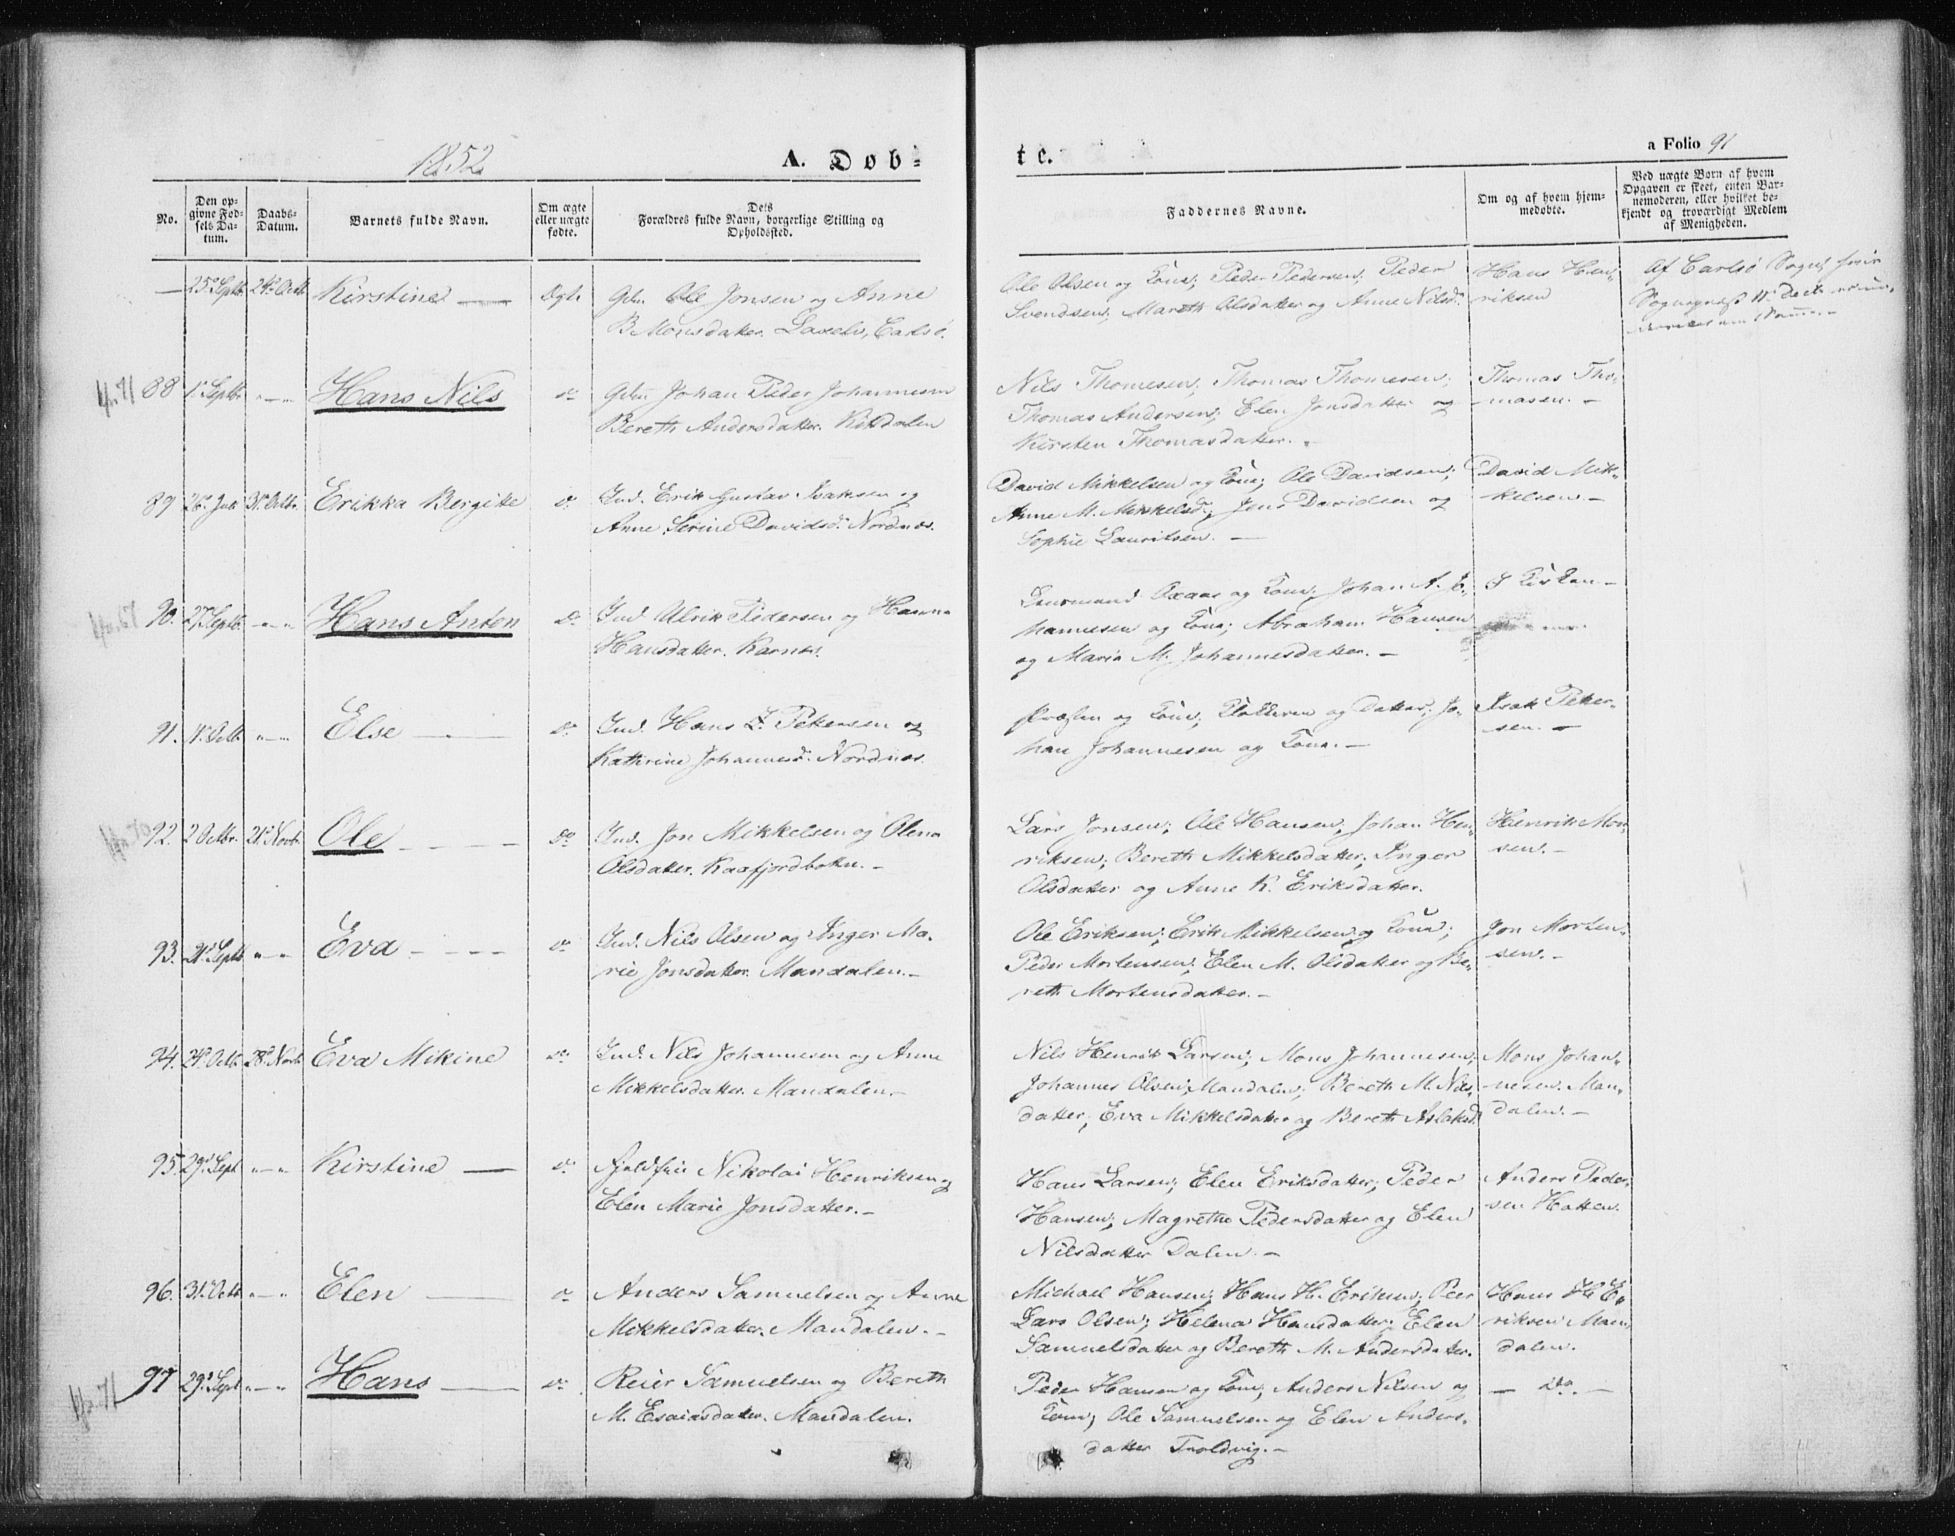 1852.
A. Døb-
tc.
a Folio 91
No.
Den op-
givne Fød-
sels Da-
tum.
Daabs-
Datum.
Barnets fulde Navn.
Om ægte
eller uægte
fødte.
Dets
Forældres fulde Navn, borgerlige Stilling og
Opholdssted.
Faddernes Navne.
Om og af hvem hjem-
medøbte.
Ved uægte Born af hvem
Opgaven er skeet, enten Bar-
nemoderen, eller hvilket be-
kjendt og troværdigt Medlem
af Menigheden.
— 25de Septb. 24de Octb. Kirstine — Ægte
Ole Jonsen og Anne
B. Monsdatter. Laxelv, Carlsø.
Ole Olsen og Kone; Peder Pedersen; Peder
Svendsen; Mareth Olsdatter og Anne Nilsd.
Hans Hen-
riksen
Af Carlsø Sogn
88 1ste Septb. " — " Hans Nils do
Johan Peder Johannesen
Bereth Andersdatter. Kitdalen
Nils Thomesen; Thomas Thomesen;
Thomas Andersen; Elen Jonsdatter og
Kirsten Thomasdatter. -
Thomas Tho-
masen. -
89 26de Juli 31te Octbr. Erikka Bergitte do
Ind. Erik Gustav Isaksen og
Anne Serine Davidsd. Nordnæs.
David Mikkelsen og Kone; Ole Davidsen;
Anne M. Mikkelsd.; Jens Davidsen og
Sophie Lauritsen. —
David Mik-
kelsen -
90. 27 Septb. " — " Hans Anton do
Ind. Ulrik Pedersen og Hanna
Hansdatter. Karnæs.
Lensmand Oxaas og Kone; Johan A. Jo-
hannesen og Kone; Abraham Hansen
og Maria M. Johannesdatter. -
I Kirken -
91. 1ste Octb. " — " Else — do
Ind. Hans I. Petersen og
Kathrine Johannesd. Nordnæs.
Præsten og Kone; Klokkeren og Datter; Jo-
han Johannesen og Kone. -
Isak Peter-
sen. -
92. 2 Octbr. 21de Novbr. Ole — do
Ind. Jon Mikkelsen og Olena
Olsdatter. Kaafjordbotten. -
Lars Jonsen; Ole Hansen, Johan Hen-
riksen; Bereth Mikkelsdatter; Inger
Olsdatter og Anne K. Eriksdatter.
Henrik Mon-
sen. -
93. 21de Septb. " — " Eva — do
Ind. Nils Olsen og Inger Ma-
rie Jonsdatter. Mandalen. -
Ole Eriksen; Erik Mikkelsen og Kone;
Peder Mortensen; Elen M. Olsdatter og Be-
reth Mortensdatter. -
Jon Morten-
sen. -
94. 24de Octb. 28de Novb. Eva Mikine do
Ind. Nils Johannesen og Anne
Mikkelsdatter. Mandalen. -
Nils Henrik Larsen; Mons Johannesen;
Johannes Olsen; Mandalen; Bereth M. Nils-
datter; Eva Mikkelsdatter og Bereth Aslaksd.
Mons Johan-
nesen. Man-
dalen. -
95. 29de Sept " — " Kirstine — do
Nikolai Henriksen og
Elen Marie Jonsdatter. -
Hans Larsen; Elen Eriksdatter; Peder
Hansen; Magrethe Pedersdatter og Elen
Nilsdatter Dalen. -
Anders Peder-
sen Hatten.
96. 31te Octb. " — " Elen — do
Anders Samuelsen og Anne
Mikkelsdatter. Mandalen. -
Michael Hansen; Hans H. Eriksen; Peer
Lars Olsen; Helena Hansdatter; Elen
Samuelsdatter og Bereth M. Andersdatter.
Hans H. E-
riksen Man-
dalen.
97 29de Sept " — " Hans — do
Reier Samuelsen og Bereth
M. Esaiasdatter. Mandalen.
Peder Hansen og Kone; Anders Nilsen og
Kone; Ole Samuelsen og Elen Anders-
datter Troldvig. -
— do. —